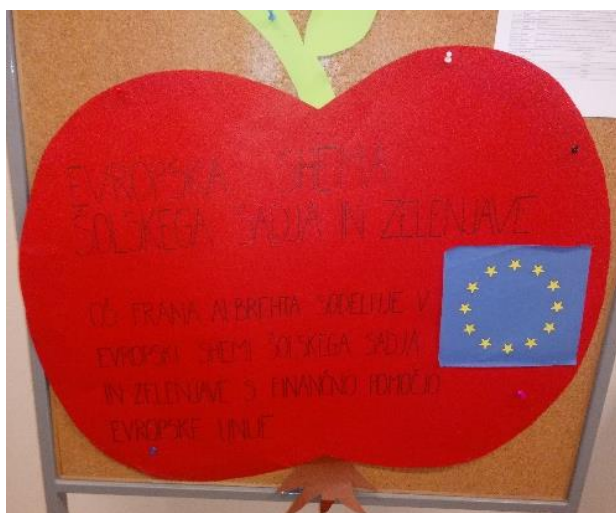 EVROPSKA SHEMA
ŠOLSKEGA SADJA IN ZELENJAVE
OŠ FRANA ALBREHTA SODELUJE V
EVROPSKI SHEMI ŠOLSKEGA SADJA
IN ZELENJAVE S FINANČNO POMOČJO
EVROPSKE UNIJE